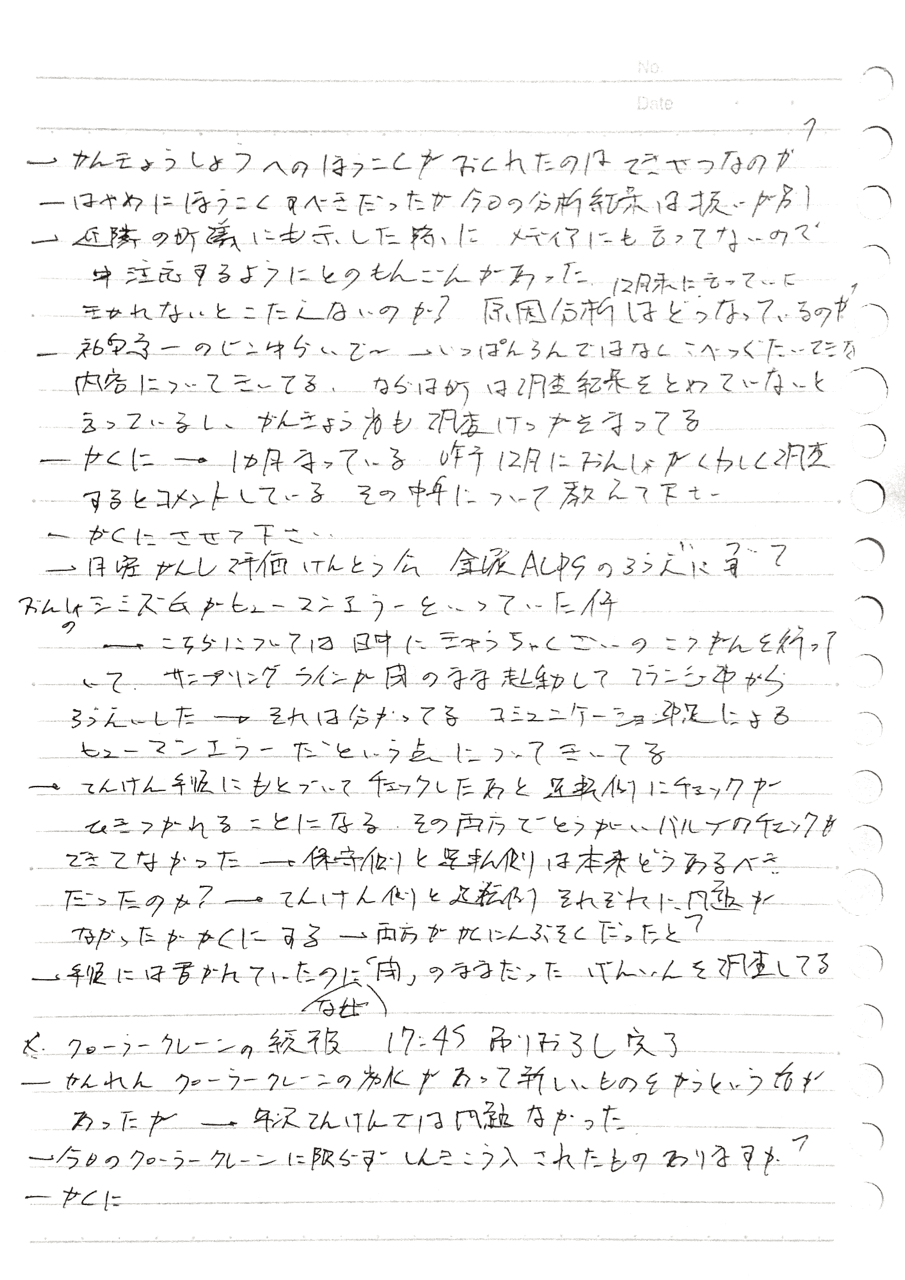 No.
Date
→ かんきょうしょうへのほうこくがおくれたのは てきせつなのか?
― はやめにほうこくすべきだったが今日の分析結果は扱いが別
→ 近隣の町議にも示した際に メディアにも言ってないので
注 するようにとのもんごんがあった 12月末に言っていた
きかれないとこたえないのか? 原因分析はどうなっているのか?
― のじゅんかいで~ →いっぱんろんではなくこべつぐたいてきな
内容についてきいてる。 ならは町は調査結果をとめていないと
言っているし、かんきょう省も調査けっかをまってる
― かくに → 1か月まっている 昨年12月におんしゃがくわしく調査
するとコメントしている その中身について教えて下さい
― かくにさせて下さい
→ 月 かんし評価けんとう会 金属ALPSのろうえいに
おんしゃのシミズ氏がヒューマンエラーといっていた件
→ こちらについては 日中にきゅうちゃくざいのこうかんを行って
いて、サンプリングラインが閉のまま起動してフランジ部から
ろうえいした → それは分かってる コミュニケーション不足による
ヒューマンエラーだという点についてきいてる
→ てんけん手順にもとづいてチェックしたあと運転側にチェックが
ひきつがれることになる。その両方でとうがいバルブのチェックが
できてなかった → 保守側と運転側は本来どうあるべき
だったのか? → てんけん側と運転側それぞれに問題が
なかったかかくにする → 両方がかくにんぶそくだったと?
→ 手順には書かれていたのに「閉」のままだった げんいんを調査してる
な世
×. クローラークレーンの続報 17:45 吊りおろし完了
― かんれん クローラークレーンの劣化があって新しいものをかうという話が
あったが → 年次てんけんでは問題なかった
→ 今日のクローラークレーンに限らず しんきこう入されたものありますか?
― かくに